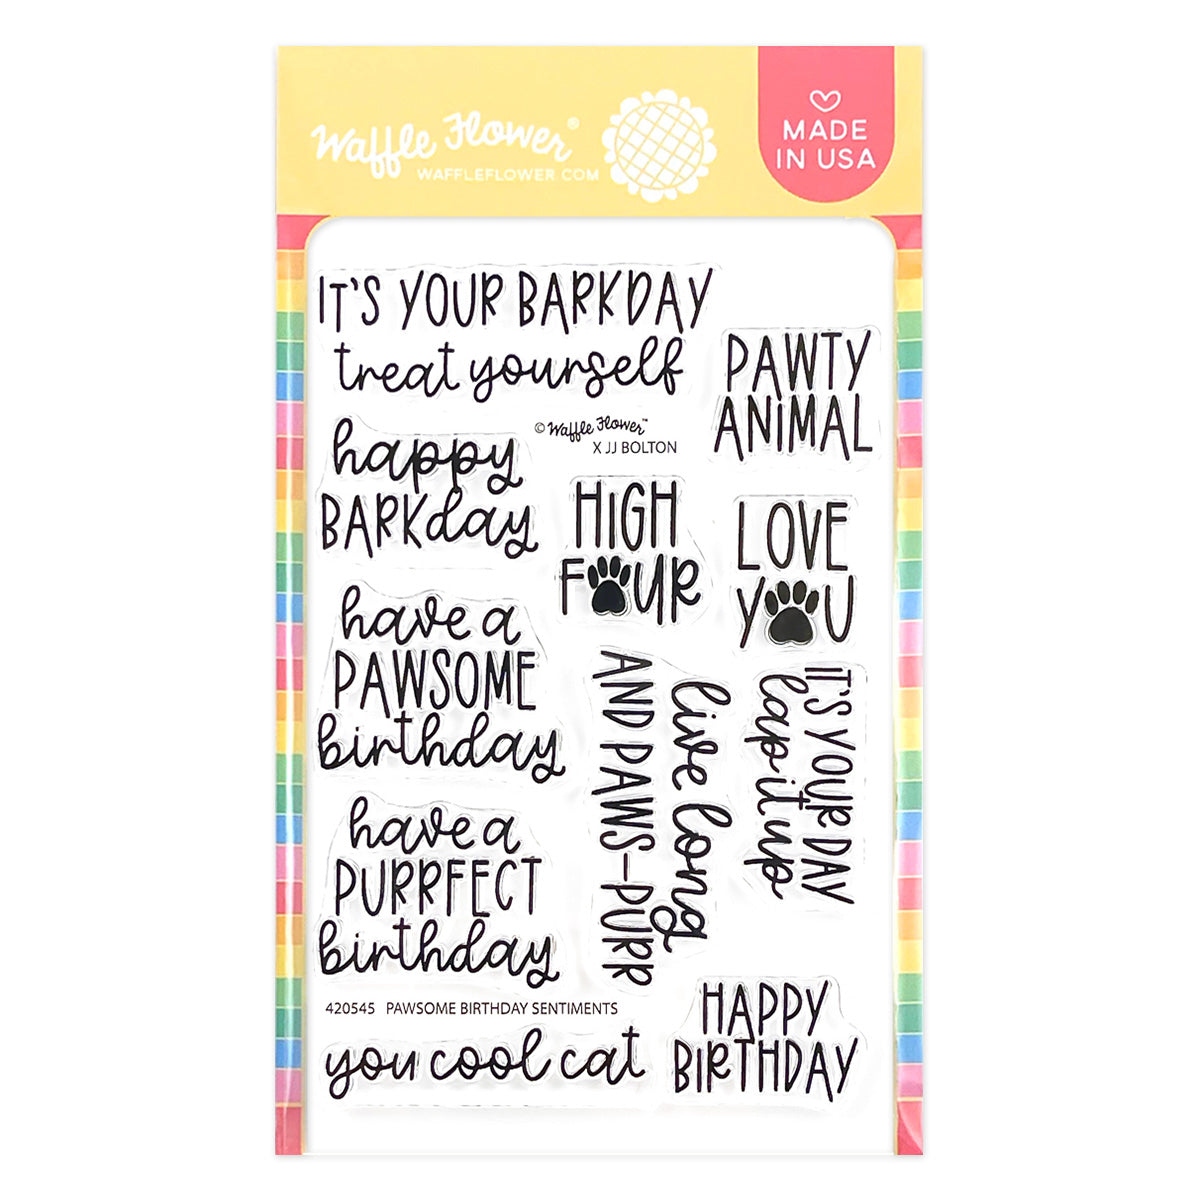 Waffle Flower®
WAFFLEFLOWER.COM
MADE
IN USA
IT'S YOUR BARKDAY
treat yourself
PAWTY
ANIMAL
© Waffle Flower™
X JJ BOLTON
happy
BARKday
HIGH
FOUR
LOVE
YOU
have a
PAWSOME
birthday
live long
AND PAWS-PURR
IT'S YOUR DAY
lap it up
have a
PURRFECT
birthday
420545 PAWSOME BIRTHDAY SENTIMENTS
you cool cat
HAPPY
BIRTHDAY